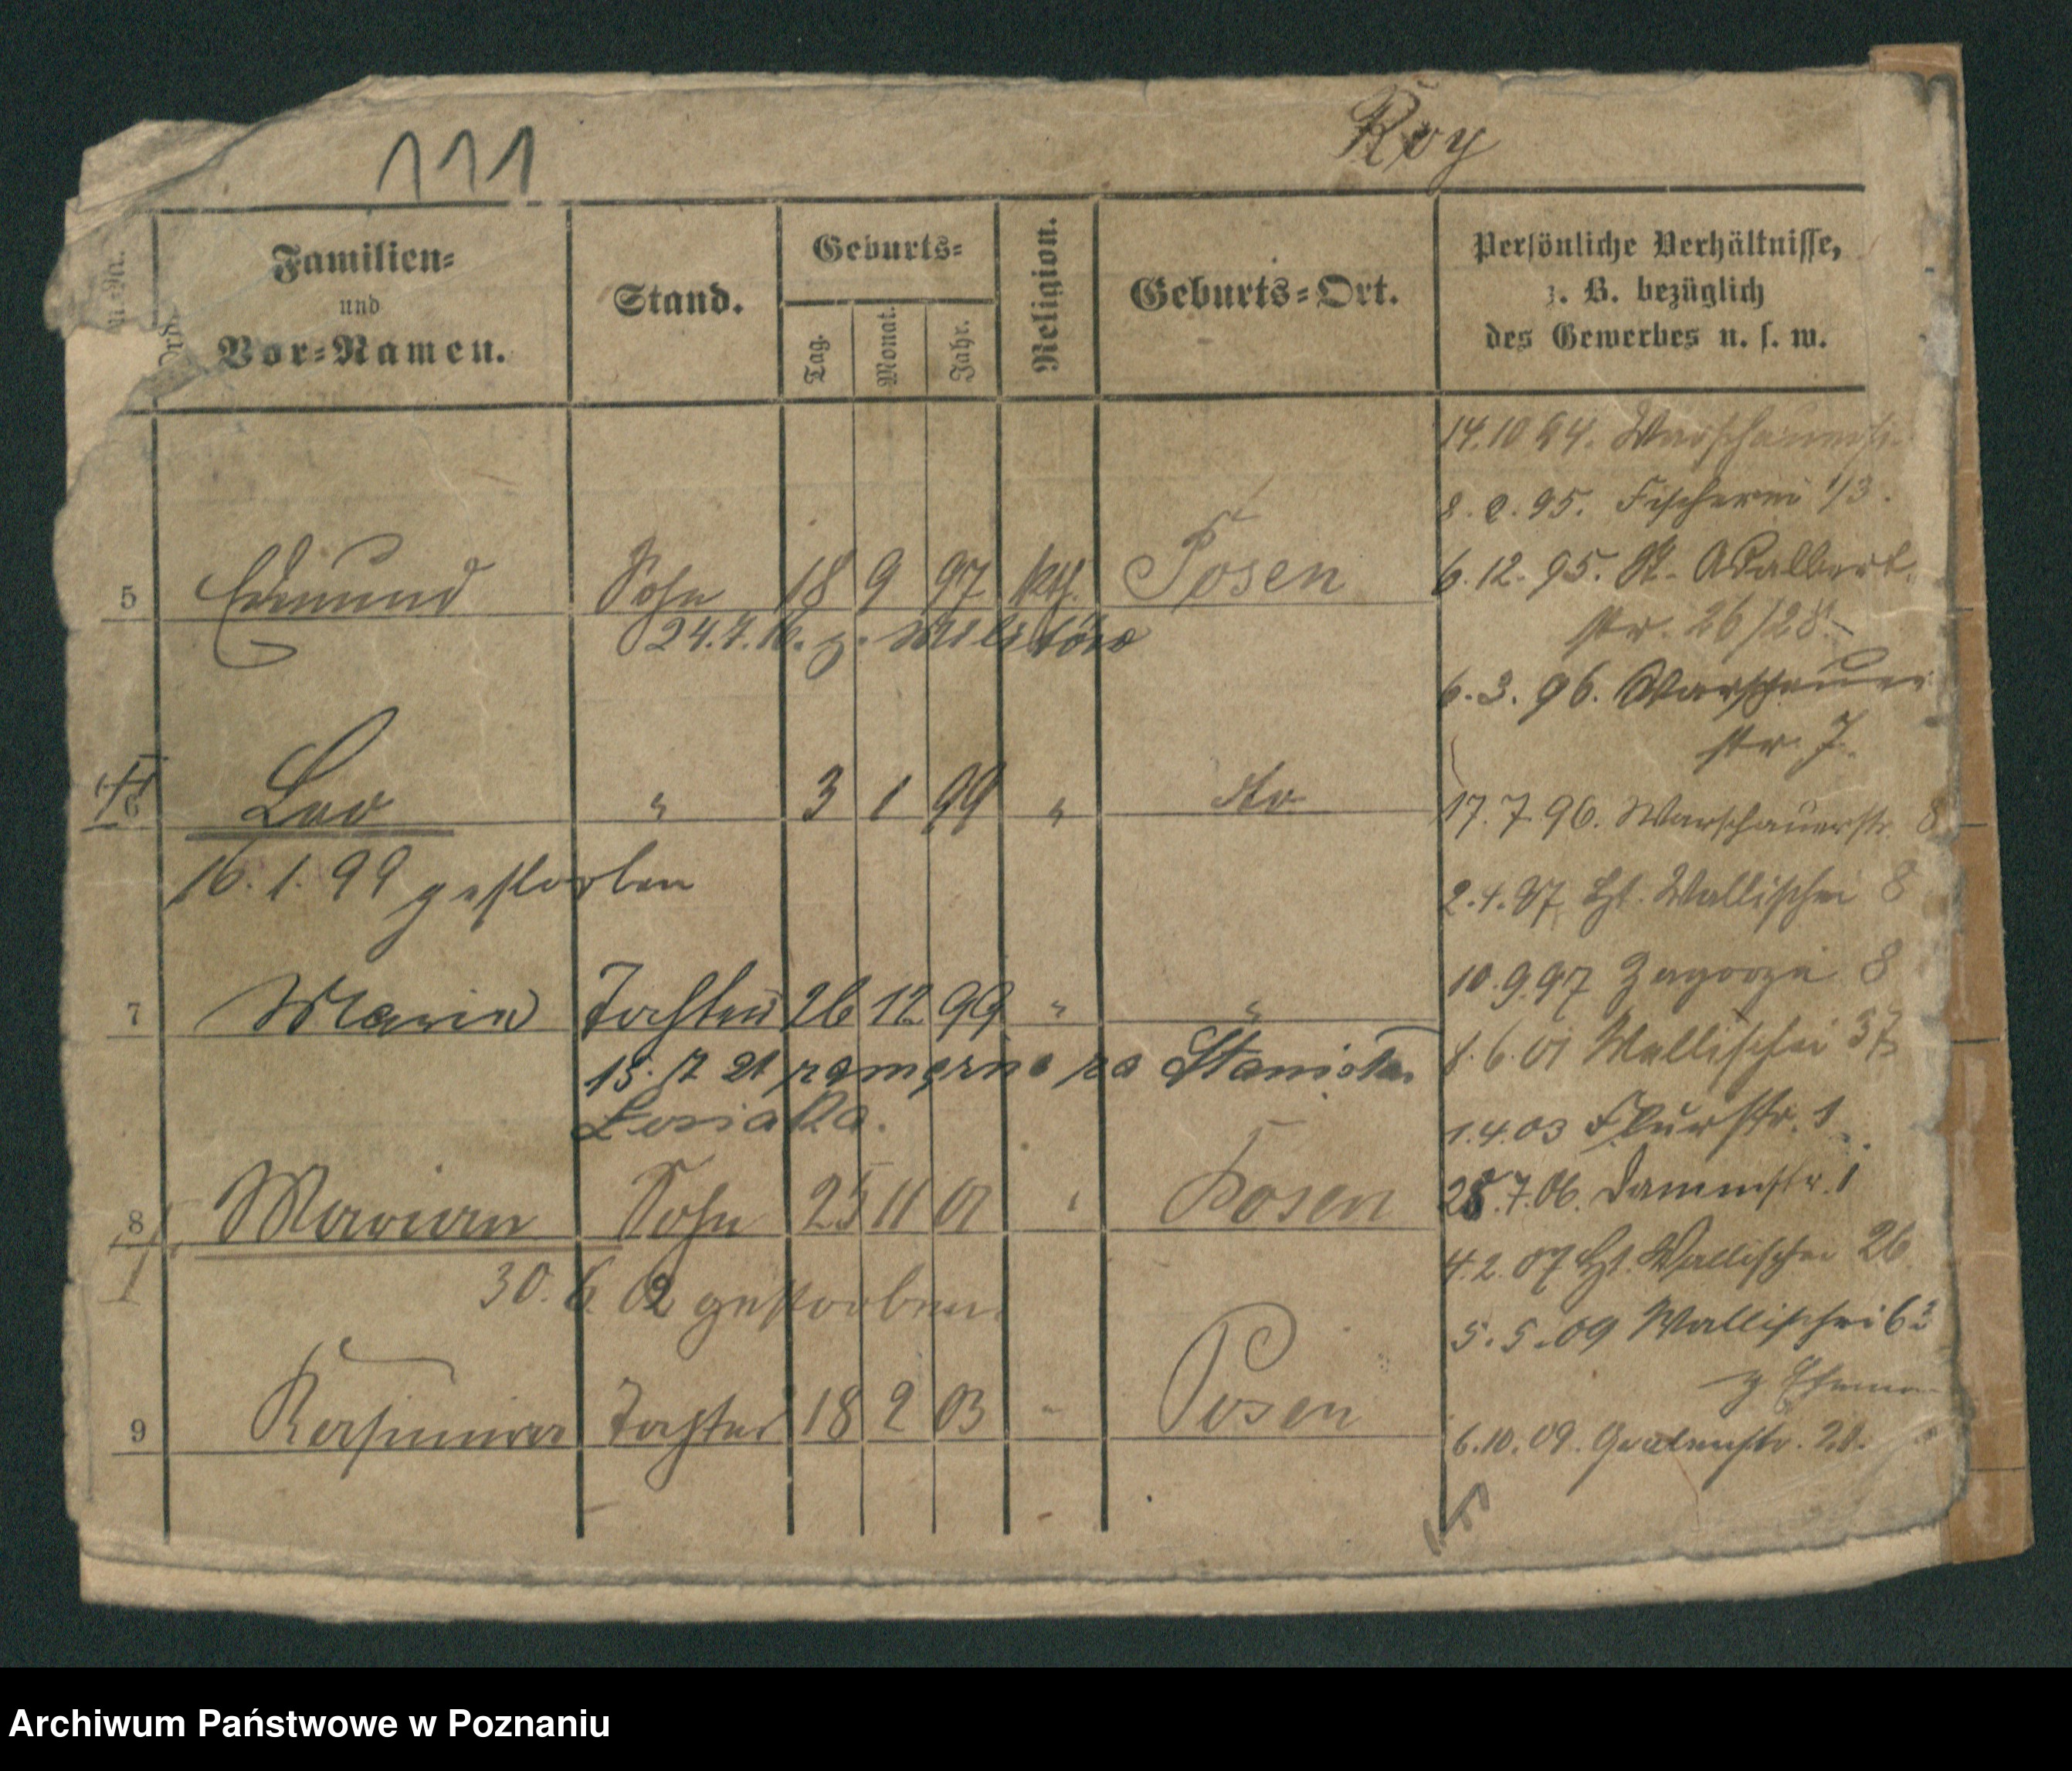 111
Roy
Familien=
und
Vor=Namen.
Stand.
Geburts=
Tag.
Monat.
Jahr.
Religion.
Geburts=Ort.
Persönliche Verhältnisse,
z. B. bezüglich
des Gewerbes u. s. w.
14.10 94. Warschauerstr.
8. 2. 95. Fischerei 1/3.
5 Edmund Sohn 18 9 97 kth. Posen
6. 12. 95. St. Adalbert
str. 26/28.
24.7.16. z. Militär
6. 3. 96. Warschauer
str. 7.
6 Leo " 3 1 99 " do
17. 7 96. Warschauerstr. 8
16. 1. 99 gestorben
2.4.97 Ht. Wallischei 8
10.9.97 Zagorze 8
7 Maria Tochter 26 12 99 " "
1. 6. 01 Wallischei 37
zamężna za Stanisła
Losiaka.
1.4.03 Flurstr. 1
8 Marian Sohn 25 11 01 " Posen
28.7.06. Dammstr. 1
4.2.07 Ht. Wallischei 26
30. 6. 02 gestorben.
5. 5. 09 Wallischei 63
z Ehemann
9 Kasimira Tochter 18 2 03 " Posen
6.10.09. Grabenstr. 20.
Archiwum Państwowe w Poznaniu